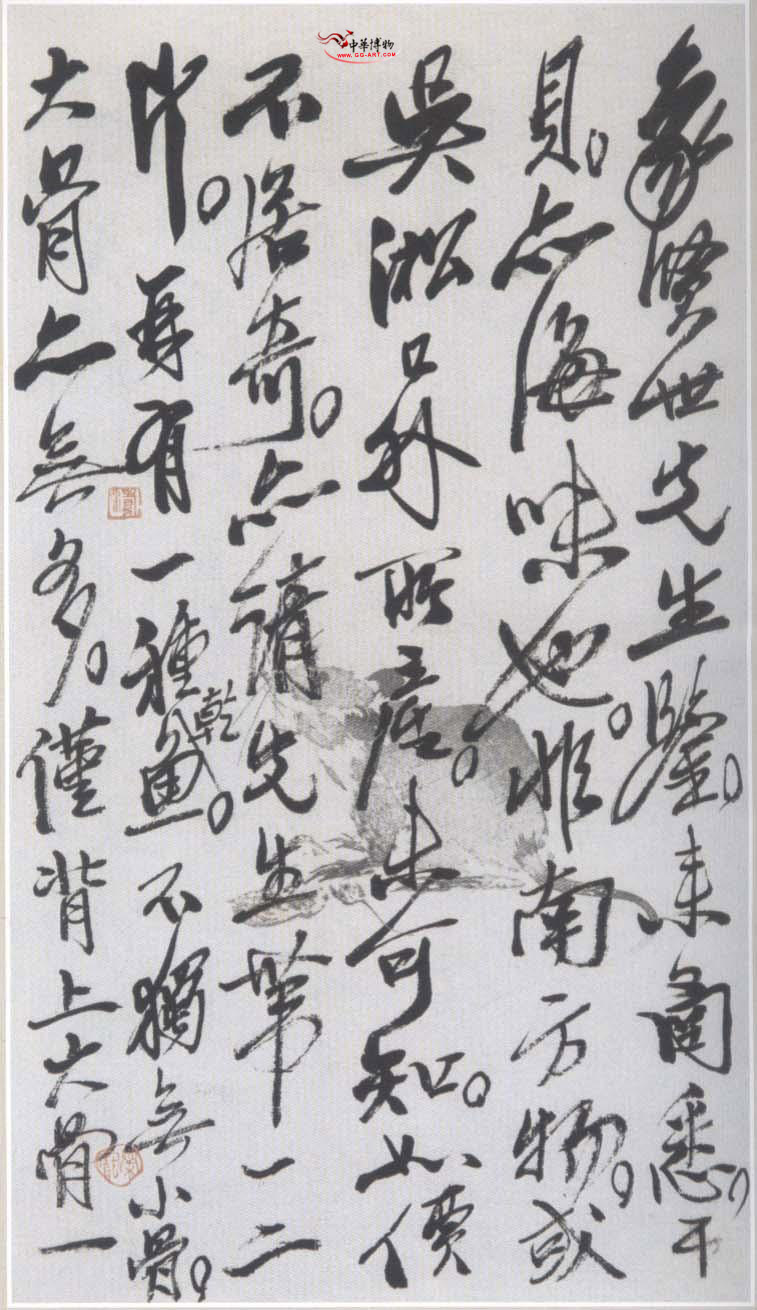 中華博物
WWW.GG-ART.COM
象賢世先生鑒。来函悉。干
貝。亦海味也。非南方物。或
吳淞口外所產。未可知。如價
不居奇。亦請先生帶一二
斤。再有一種魚乾。不獨無小骨。
大骨亦無多。僅背上大骨一